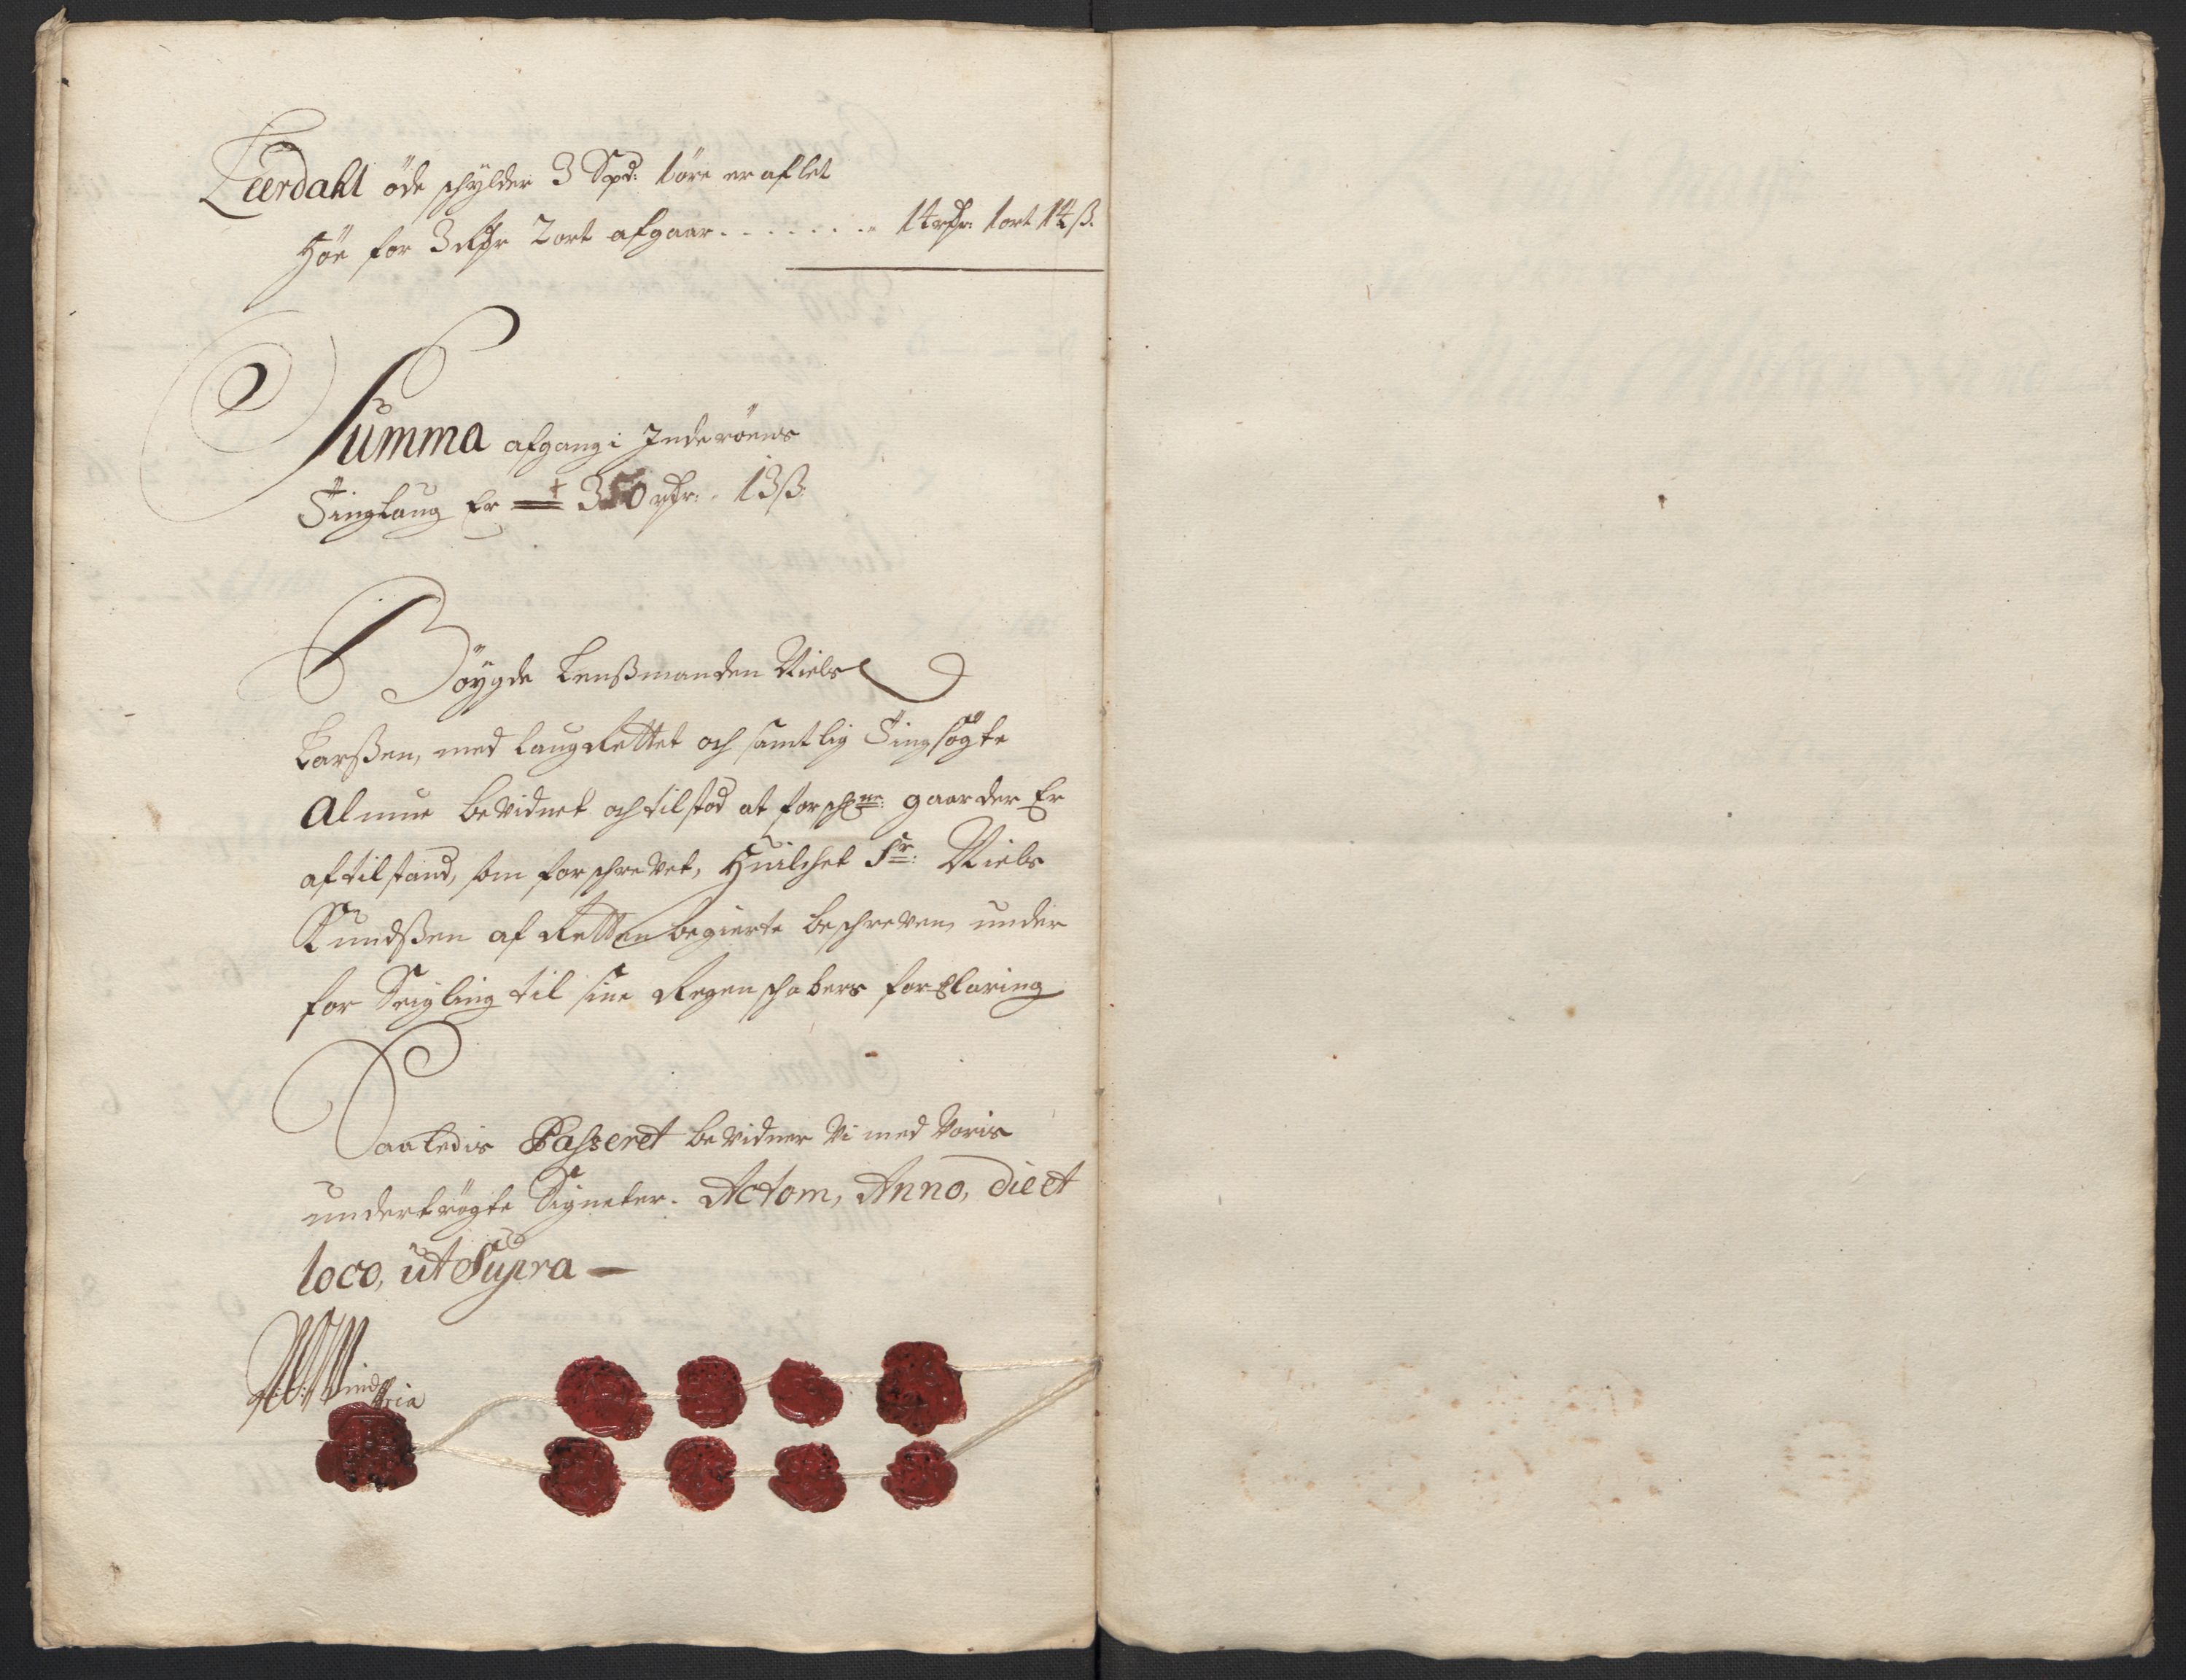 Leerdahl öde schylder 3 Spd: 1öre er aflet
Höe for 3 rdr 2ort afgaar . . . . . . . . 14rdr: 1ort 14ß.
Summa afgang i Inderöens
Tinglaug Er 350 rdr: . 13ß.
Böygde Lenßmanden Niels
Larßen, med laugRettet och samtlig Tingsögte
Almue bevidnet och tilstod at forschne: gaarder Er
aftilstand, som forschrevet, Huilchet Sr: Niels
Knudßen af Retten begierte beschreven under
forSeigling til sine Regenschabers forKlaring
Saaledis Passeret bevidner Vi med Voris
undertrögte Signeter. Actom, Anno, die et
loco, ut Supra —